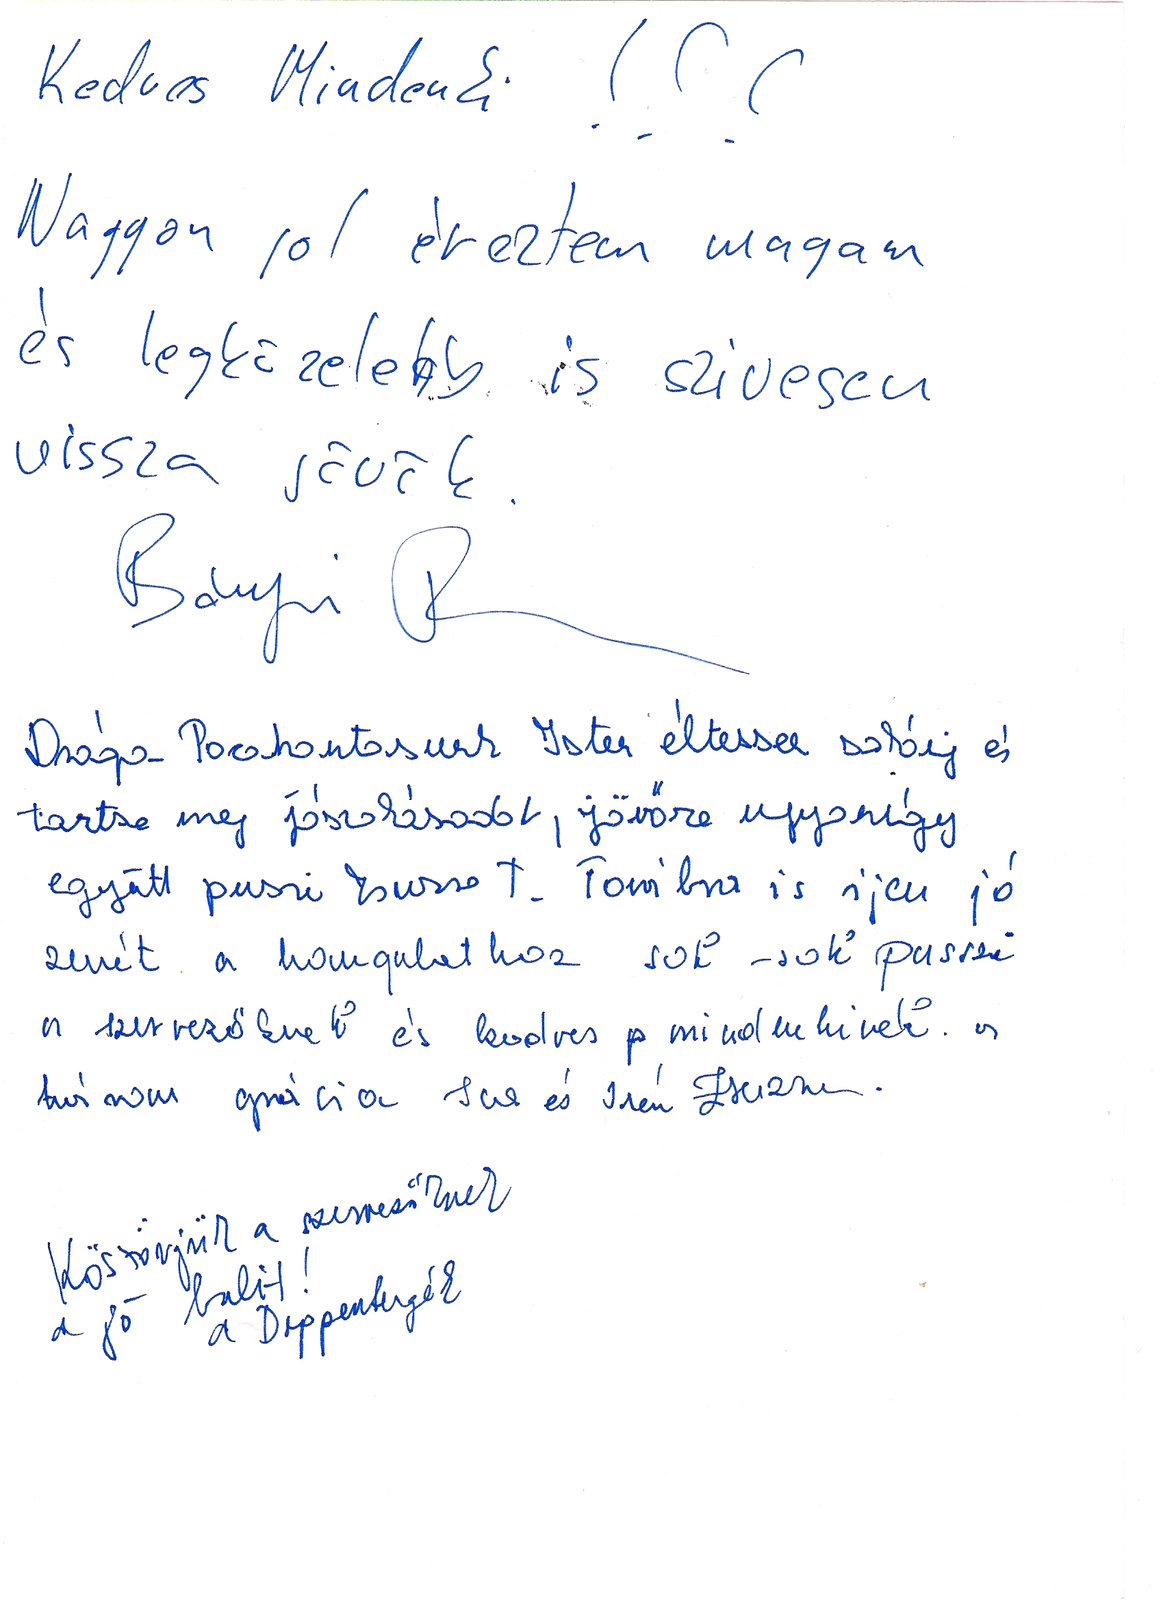 Kedves Mindenki !!!
Naggyon jol éreztem magam
és legközelebb is szivesen
vissza jövök.
Drága Pocahontasunk Isten éltessen sokáig és
tartsa meg jószokásodat, jövőre ugyanígy
együtt puszi Zsuzsa T. További is ijen jó
zenét a hangulathoz sok -sok pusszi
a szervezőknek és kedves mindenkinek. a
három grácia Sue és Irén Zsuzsa.
Köszönjük a szervezőknek
a jó bulit!
a Doppenbergék